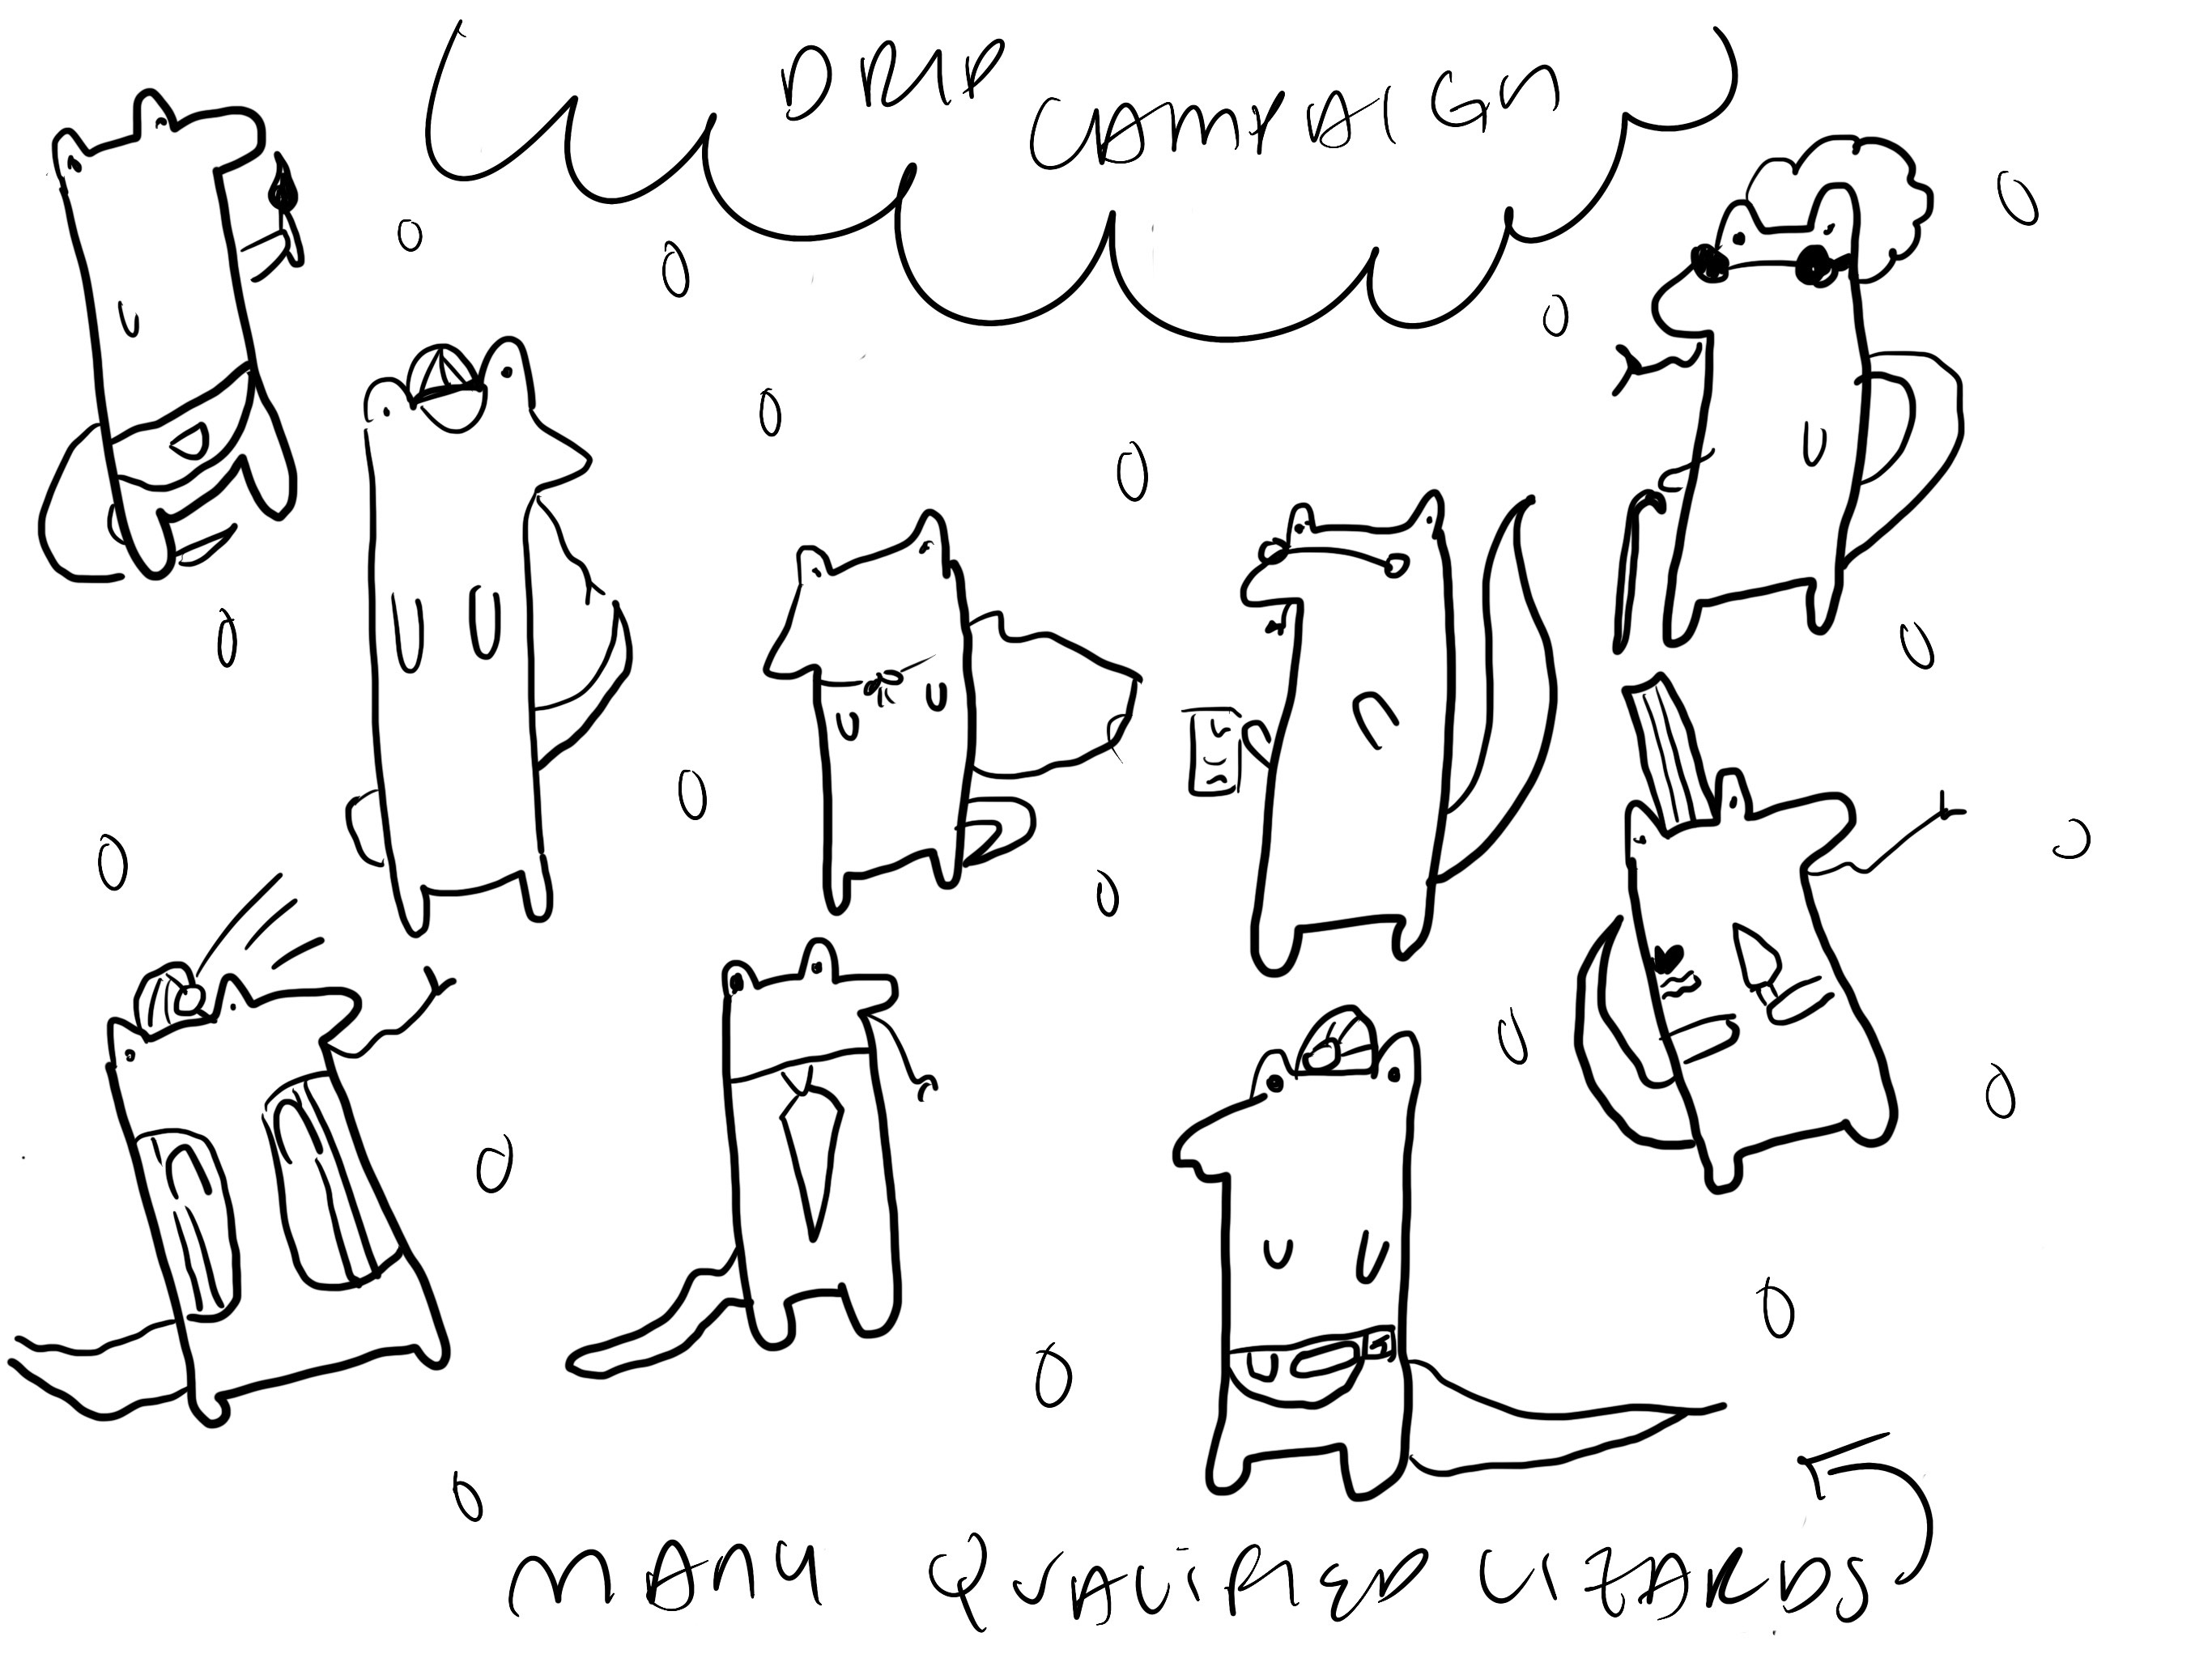 DRIP CAMPAIGN
MANY QUALIFIED LIZARDS